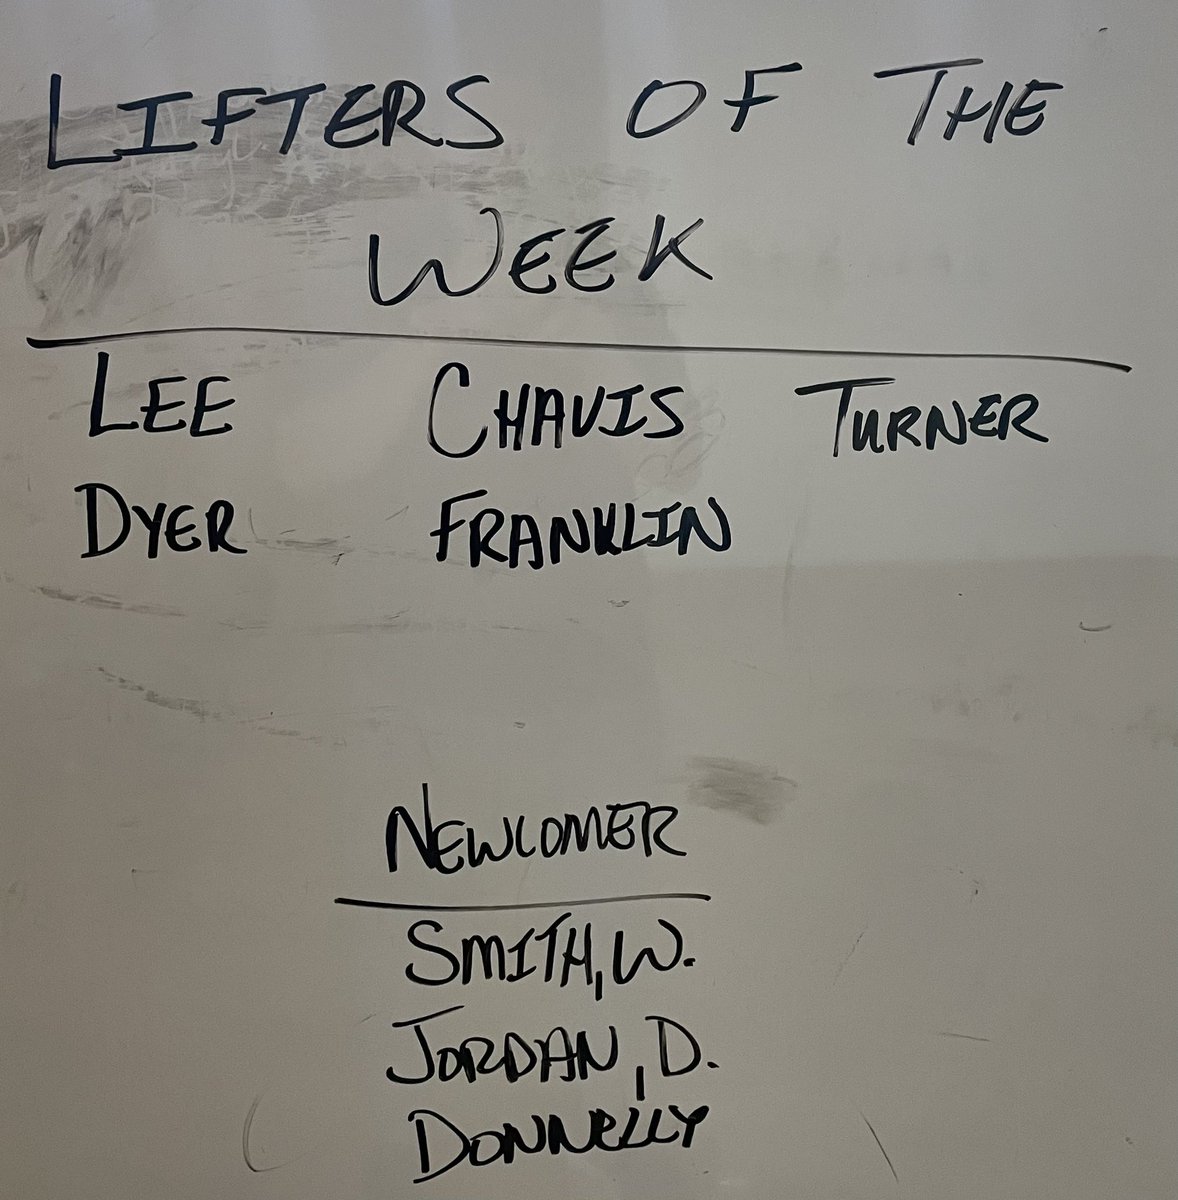 LIFTERS OF THE
WEEK
LEE CHAVIS TURNER
DYER FRANKLIN
NEWCOMER
SMITH, W.
JORDAN, D.
DONNELLY